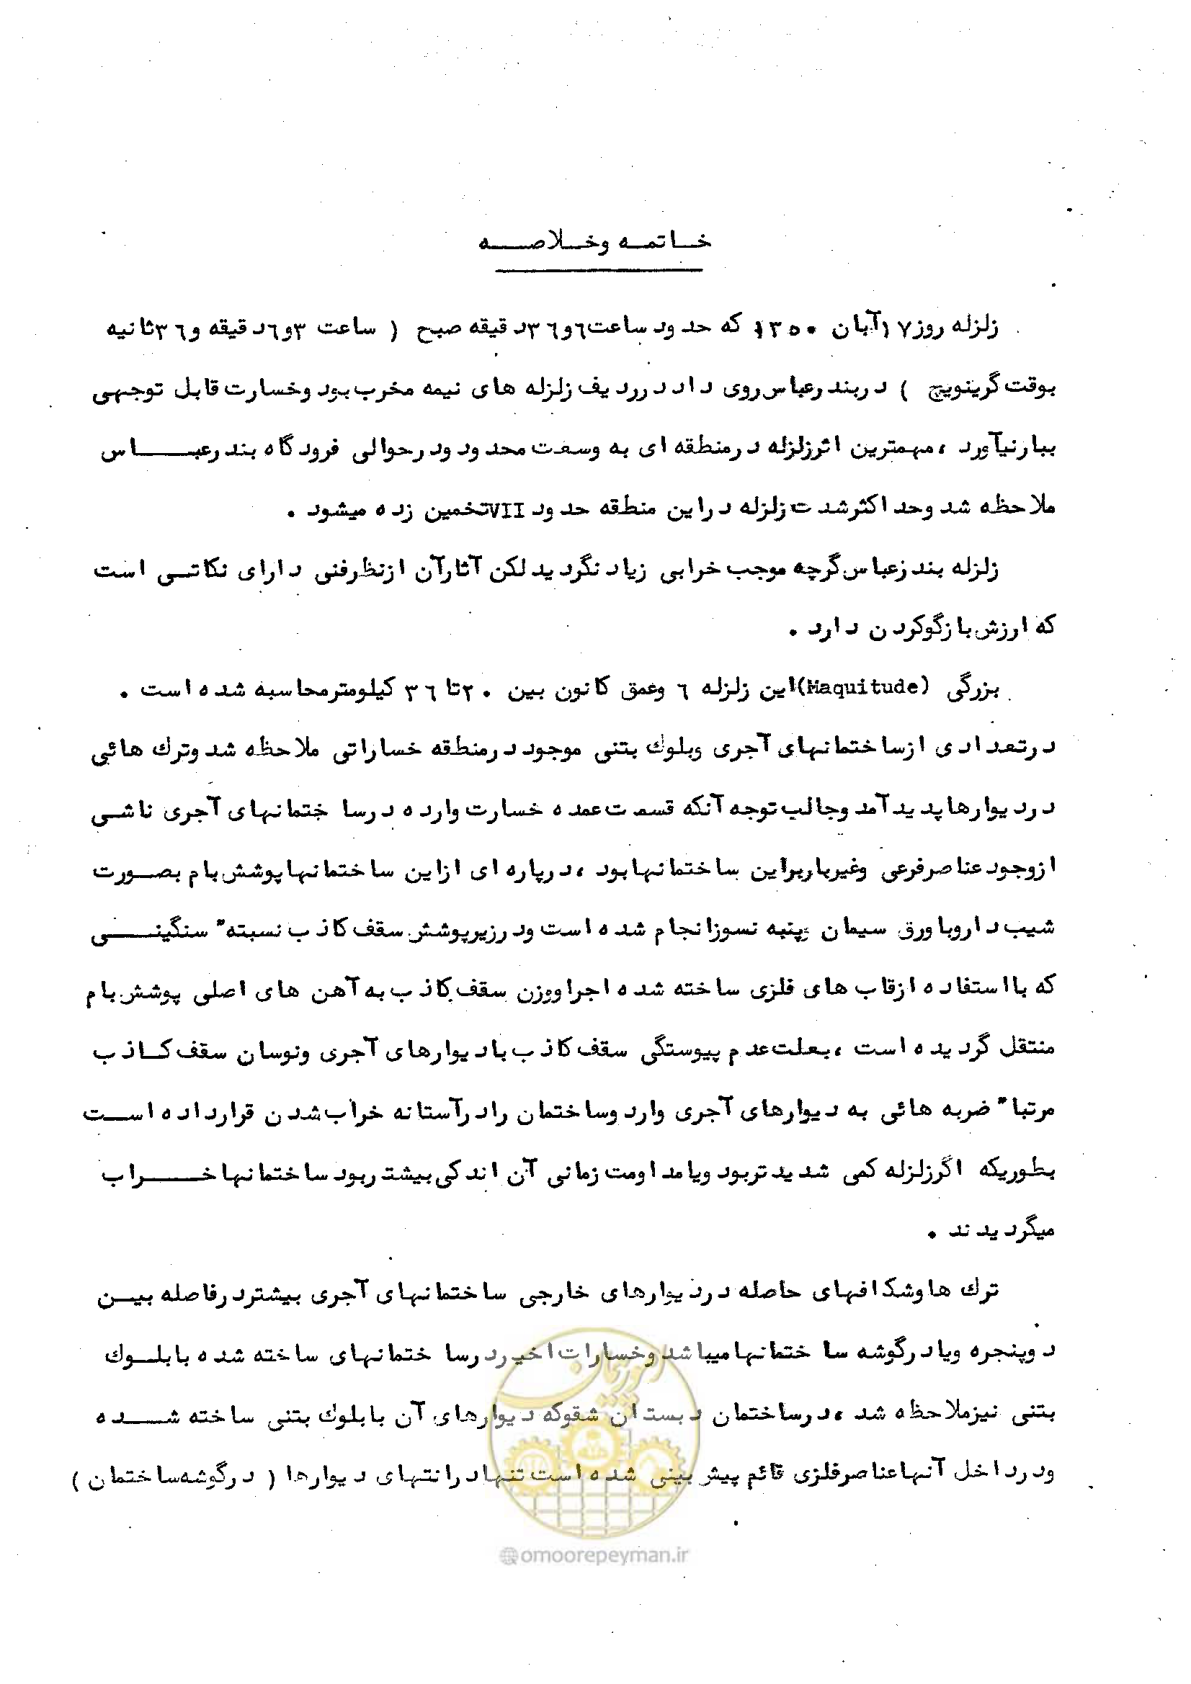 خاتمه وخلاصه
زلزله روز۱۷آبان ۱۳۵۰ که حدود ساعت۶و۳۶دقیقه صبح ( ساعت ۳و۶دقیقه و۳۶ثانیه
بوقت گرینویچ ) دربندرعباس روی داد درردیف زلزله های نیمه مخرب بود وخسارت قابل توجهی
ببارنیآورد ، مهمترین اثرزلزله درمنطقه ای به وسعت محدود ودرحوالی فرودگاه بندرعبــاس
ملاحظه شد وحداکثرشدت زلزله دراین منطقه حدود VIIتخمین زده میشود .
زلزله بندرعباس گرچه موجب خرابی زیاد نگردید لکن آثارآن ازنظرفنی دارای نکاتی است
که ارزش بازگوکردن دارد .
بزرگی (Maquitude)این زلزله ۶ وعمق کانون بین ۲۰تا ۳۶ کیلومترمحاسبه شده است .
درتعدادی ازساختمانهای آجری وبلوك بتنی موجود درمنطقه خساراتی ملاحظه شد وترك هائی
دردیوارها پدیدآمد وجالب توجه آنکه قسمت عمده خسارت وارده درساختمانهای آجری ناشی
ازوجود عناصرفرعی وغیرباربراین ساختمانها بود ، درپاره ای ازاین ساختمانها پوشش بام بصورت
شیب داروباورق سیمان وپنبه نسوزانجام شده است ودرزیرپوشش سقف کاذب نسبته" سنگینــی
که بااستفاده ازقاب های فلزی ساخته شده اجرا ووزن سقف کاذب به آهن های اصلی پوشش بام
منتقل گردیده است ، بعلت عدم پیوستگی سقف کاذب با دیوارهای آجری ونوسان سقف کــاذب
مرتبا" ضربه هائی به دیوارهای آجری وارد وساختمان رادرآستانه خراب شدن قرارداده اســت
بطوریکه اگرزلزله کمی شدیدتربود ویامداومت زمانی آن اندکی بیشتربود ساختمانها خــراب
میگردیدند .
ترك ها وشکافهای حاصله دردیوارهای خارجی ساختمانهای آجری بیشتردرفاصله بیــن
دوپنجره ویادرگوشه ساختمانها میباشد وخسارات اخیردرساختمانهای ساخته شده با بلــوك
بتنی نیزملاحظه شد ، درساختمان دبستان شقوکه دیوارهای آن با بلوك بتنی ساخته شــده
ودرداخل آنها عناصرفلزی قائم پیش بینی شده است تنها درانتهای دیوارها ( درگوشه ساختمان )
امور پیمان
@omoorepeyman.ir